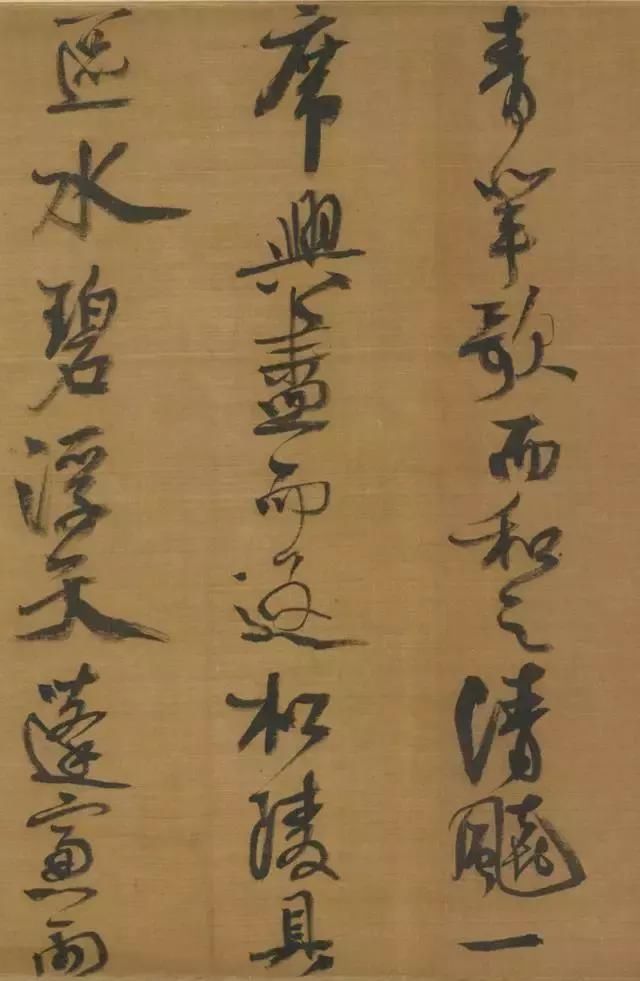 青歌而和之清飈一
席興盡而返松陵具
區水碧浮天蓬窓雨